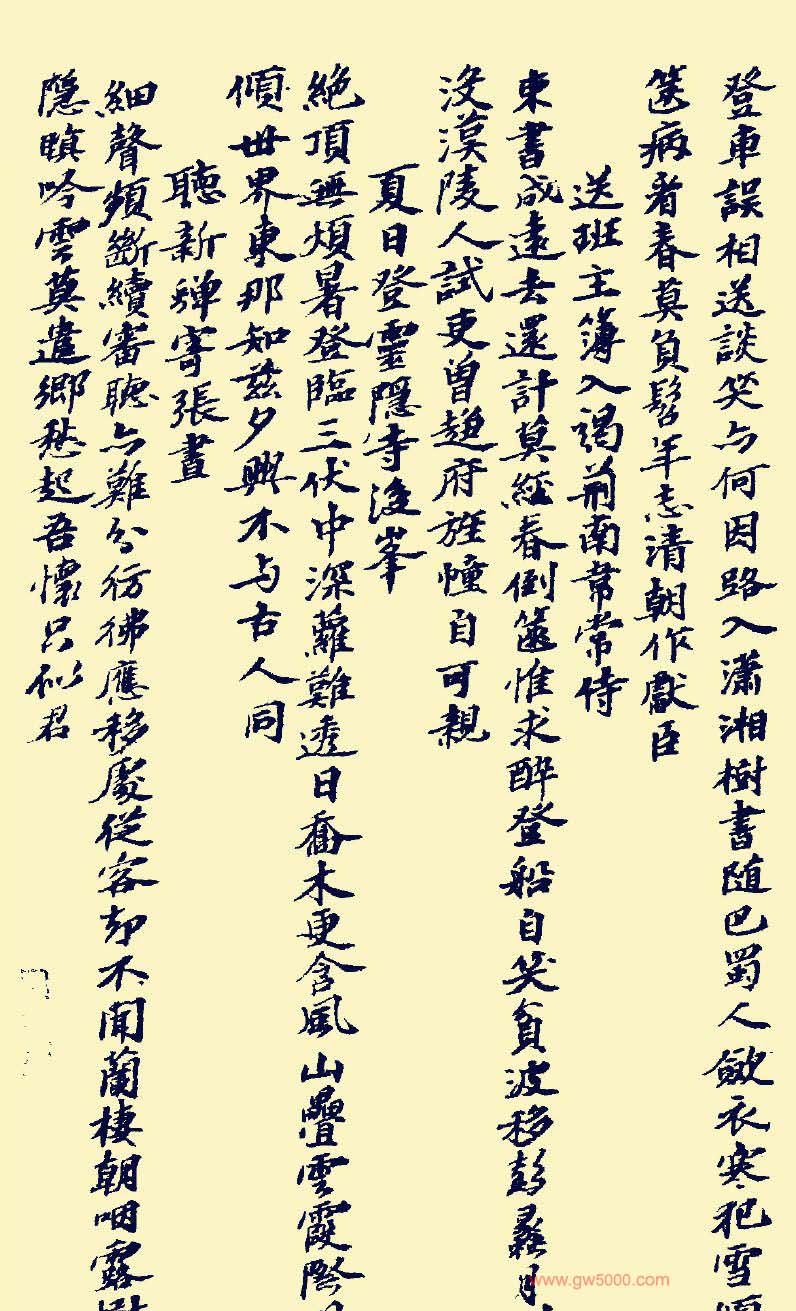 登車誤相送談笑与何因路入瀟湘樹書随巴蜀人斂衣寒犯雪
篋病看春莫負髫年志清朝作獻臣
送班主簿入謁荊南韋常侍
東書成遠去還計莫經春倒篋惟求醉登船自笑貧波移彭蠡月
没漢陵人試吏曾趨府旌幢自可親
夏日登靈隱寺後峯
絶頂無煩暑登臨三伏中深蘿難透日喬木更含風山疊雲霞際
傾世界東那知兹夕興不与古人同
聽新蟬寄張晝
細聲頻斷續審聽亦難分彷彿應移處從容却不聞蘭棲朝咽露
隱暝吟雲莫遣鄉愁起吾懷只似君
www.gw5000.com